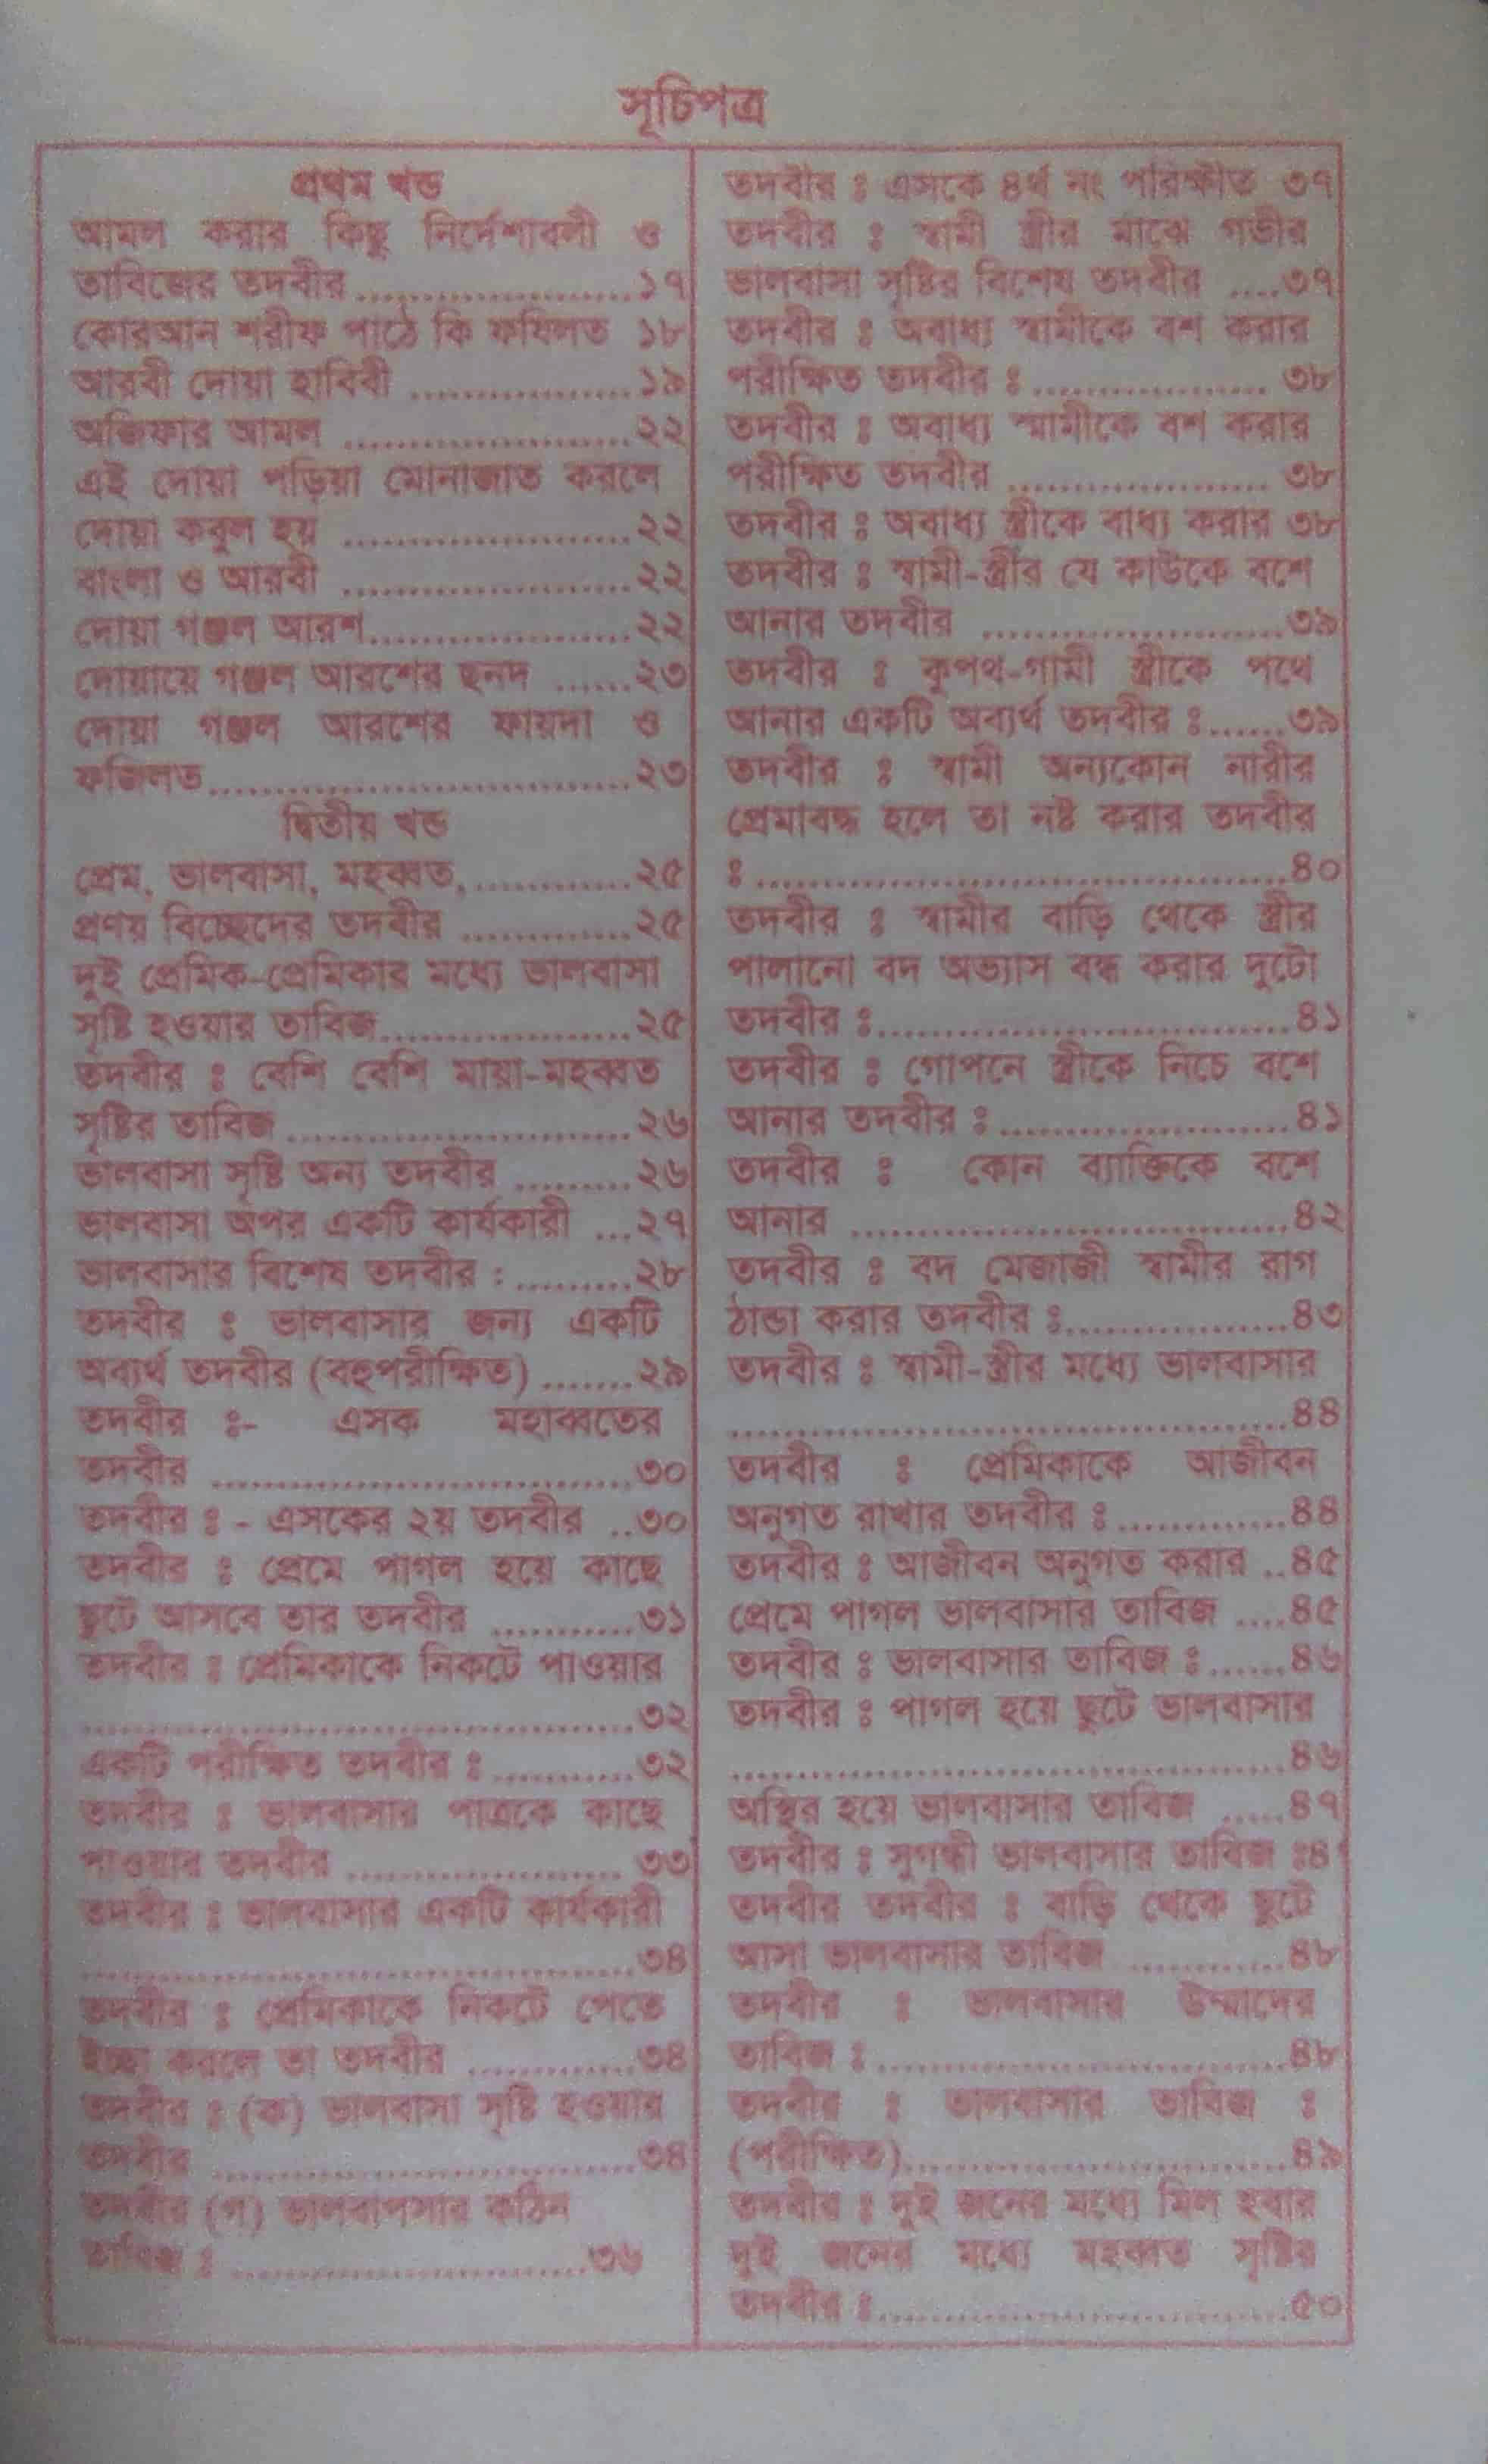 সূচিপত্র
প্রথম খন্ড
আমল করার কিছু নির্দেশাবলী ও
তাবিজের তদবীর.....................১৭
কোরআন শরীফ পাঠে কি ফযিলত ১৮
আরবী দোয়া হাবিবী .................১৯
অজিফার আমল ......................২২
এই দোয়া পড়িয়া মোনাজাত করলে
দোয়া কবুল হয় ......................২২
বাংলা ও আরবী ......................২২
দোয়া গঞ্জল আরশ....................২২
দোয়ায়ে গঞ্জল আরশের ছনদ ......২৩
দোয়া গঞ্জল আরশের ফায়দা ও
ফজিলত................................২৩
দ্বিতীয় খন্ড
প্রেম, ভালবাসা, মহব্বত,............২৫
প্রণয় বিচ্ছেদের তদবীর .............২৫
দুই প্রেমিক-প্রেমিকার মধ্যে ভালবাসা
সৃষ্টি হওয়ার তাবিজ...................২৫
তদবীর ঃ বেশি বেশি মায়া-মহব্বত
সৃষ্টির তাবিজ ..........................২৬
ভালবাসা সৃষ্টি অন্য তদবীর .........২৬
ভালবাসা অপর একটি কার্যকারী ...২৭
ভালবাসার বিশেষ তদবীর : .........২৮
তদবীর ঃ ভালবাসার জন্য একটি
অব্যর্থ তদবীর (বহুপরীক্ষিত) .......২৯
তদবীর ঃ- এসক মহাব্বতের
তদবীর ..................................৩০
তদবীর ঃ - এসকের ২য় তদবীর ..৩০
তদবীর ঃ প্রেমে পাগল হয়ে কাছে
ছুটে আসবে তার তদবীর ...........৩১
তদবীর ঃ প্রেমিকাকে নিকটে পাওয়ার
...........................................৩২
একটি পরীক্ষিত তদবীর ঃ...........৩২
তদবীর ঃ ভালবাসার পাত্রকে কাছে
পাওয়ার তদবীর ..................... ৩৩
তদবীর ঃ ভালবাসার একটি কার্যকারী
...........................................৩৪
তদবীর ঃ প্রেমিকাকে নিকটে পেতে
ইচ্ছা করলে তা তদবীর .............৩৪
তদবীর ঃ (ক) ভালবাসা সৃষ্টি হওয়ার
তদবীর .................................৩৪
তদবীর (গ) ভালবাপসার কঠিন
তাবিজ ঃ ............................৩৬
তদবীর ঃ এসকে ৪র্থ নং পরিক্ষীত ৩৭
তদবীর ঃ স্বামী স্ত্রীর মাঝে গভীর
ভালবাসা সৃষ্টির বিশেষ তদবীর ....৩৭
তদবীর ঃ অবাধ্য স্বামীকে বশ করার
পরীক্ষিত তদবীর ঃ.................. ৩৮
তদবীর ঃ অবাধ্য স্মামীকে বশ করার
পরীক্ষিত তদবীর .................... ৩৮
তদবীর ঃ অবাধ্য স্ত্রীকে বাধ্য করার ৩৮
তদবীর ঃ স্বামী-স্ত্রীর যে কাউকে বশে
আনার তদবীর .......................৩৯
তদবীর ঃ কুপথ-গামী স্ত্রীকে পথে
আনার একটি অব্যর্থ তদবীর ঃ......৩৯
তদবীর ঃ স্বামী অন্যকোন নারীর
প্রেমাবদ্ধ হলে তা নষ্ট করার তদবীর
ঃ.........................................৪০
তদবীর ঃ স্বামীর বাড়ি থেকে স্ত্রীর
পালানো বদ অভ্যাস বন্ধ করার দুটো
তদবীর ঃ................................৪১
তদবীর ঃ গোপনে স্ত্রীকে নিচে বশে
আনার তদবীর ঃ......................৪১
তদবীর ঃ কোন ব্যাক্তিকে বশে
আনার .................................৪২
তদবীর ঃ বদ মেজাজী স্বামীর রাগ
ঠান্ডা করার তদবীর ঃ.................৪৩
তদবীর ঃ স্বামী-স্ত্রীর মধ্যে ভালবাসার
...........................................৪৪
তদবীর ঃ প্রেমিকাকে আজীবন
অনুগত রাখার তদবীর ঃ.............৪৪
তদবীর ঃ আজীবন অনুগত করার ..৪৫
প্রেমে পাগল ভালবাসার তাবিজ ....৪৫
তদবীর ঃ ভালবাসার তাবিজ ঃ......৪৬
তদবীর ঃ পাগল হয়ে ছুটে ভালবাসার
...........................................৪৬
অস্থির হয়ে ভালবাসার তাবিজ .....৪৭
তদবীর ঃ সুগন্ধী ভালবাসার তাবিজ ঃ৪
তদবীর তদবীর ঃ বাড়ি থেকে ছুটে
আসা ভালবাসার তাবিজ ............৪৮
তদবীর ঃ ভালবাসার উম্মাদের
তাবিজ ঃ...............................৪৮
তদবীর ঃ ভালবাসার তাবিজ ঃ
(পরীক্ষিত).............................৪৯
তদবীর ঃ দুই জনের মধ্যে মিল হবার
দুই জনের মধ্যে মহব্বত সৃষ্টির
তদবীর ঃ................................৫০